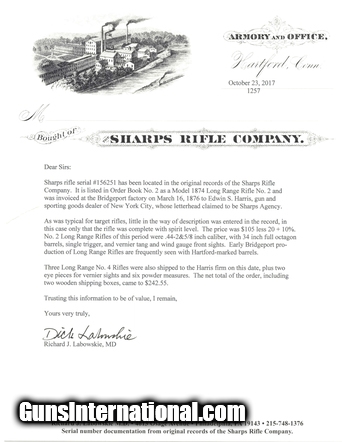 ARMORY AND OFFICE,
Hartford, Conn
October 23, 2017
1257
M
Bought of
SHARPS RIFLE COMPANY.
Dear Sirs:
Sharps rifle serial #156251 has been located in the original records of the Sharps Rifle
Company. It is listed in Order Book No. 2 as a Model 1874 Long Range Rifle No. 2 and
was invoiced at the Bridgeport factory on March 16, 1876 to Edwin S. Harris, gun and
sporting goods dealer of New York City, whose letterhead claimed to be Sharps Agency.
As was typical for target rifles, little in the way of description was entered in the record, in
this case only that the rifle was complete with spirit level. The price was $105 less 20 + 10%.
No. 2 Long Range Rifles of this period were .44-2&5/8 inch caliber, with 34 inch full octagon
barrels, single trigger, and vernier tang and wind gauge front sights. Early Bridgeport pro-
duction of Long Range Rifles are frequently seen with Hartford-marked barrels.
Three Long Range No. 4 Rifles were also shipped to the Harris firm on this date, plus two
eye pieces for vernier sights and six powder measures. The net total of the order, including
two wooden shipping boxes, came to $242.55.
Trusting this information to be of value, I remain,
Yours very truly,
Dick Labowskie
Richard J. Labowskie, MD
19143 • 215-748-1376
Serial number documentation from original records of the Sharps Rifle Company.
GunsInternational.com